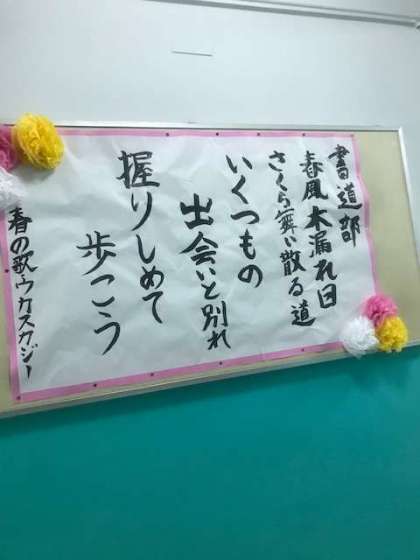 書道部
春風木漏れ日
さくら舞い散る道
いくつもの
出会いと別れ
握りしめて
歩こう
春の歌ウカスカジー